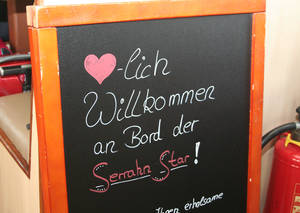 ❤-lich
Willkommen
an Bord der
Serrahn Star!
Ihren erholsame